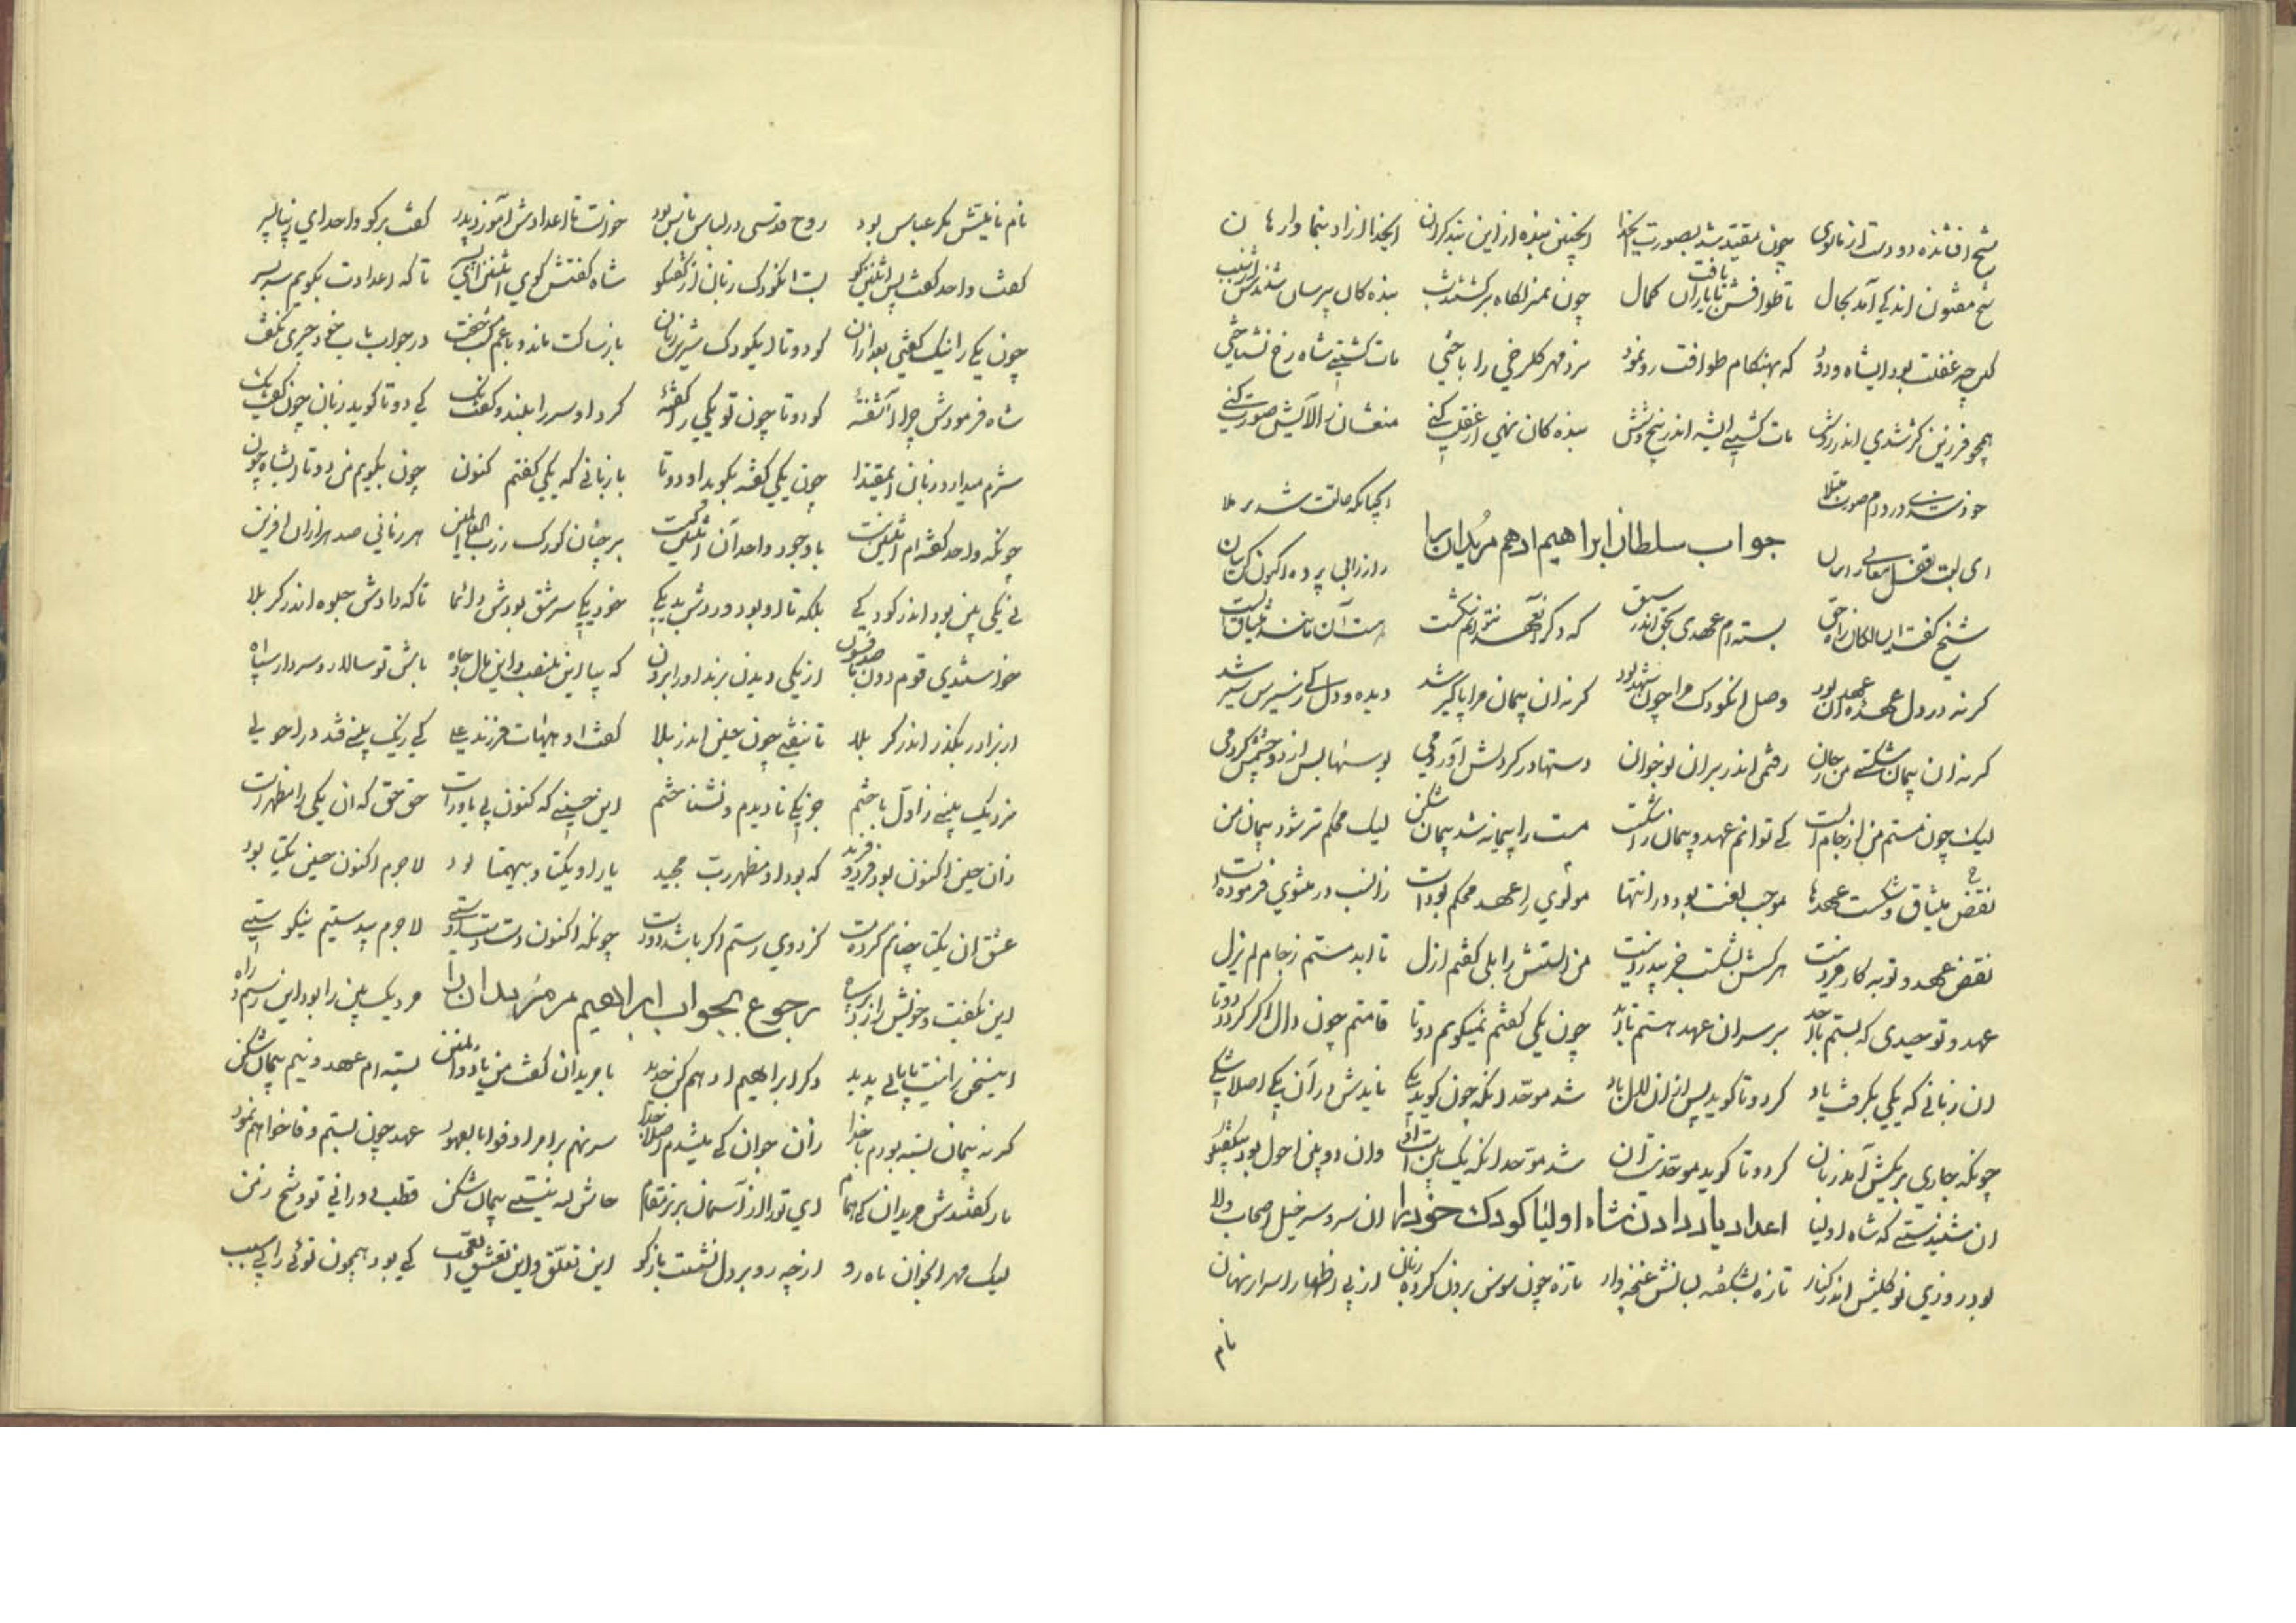 شیخ افشانده دو دست از ماسوی چون مقید شد بصورت ایخدا اینچنین بنده ازاین بند کران ایخدا ازاد بنما وارهان
شیخ مفتون اندکی آمد بحال تا طوافش یافت با یاران کمال چون نمنزلکاه برکشتند بنده کان پرسان شدندش
کاین چه غفلت بود ایشاه ودود که بهنکام طوافت رو نمود نزد مهر کلرخی را باختی مات کشتی شاه رخ نشناختی
همچو فرزین کژ شدی اندر روش مات کشتی اندر پنج و شش بنده کان نهی از غفلت کنی منعشان ز الایش صورت کنی
خود شدی در دم صورت مبتلا
جواب سلطان ابراهیم ادهم مریدان را
ای لب قفل معانی را راز را بی پرده اکنون کن بیان
شیخ کفت ایسالکان راه حق بسته ام عهدی بحق اندر سبق که دکر آنعهد نتوانم شکست هست آن مانند میثاق الست
کر نه در دل عهده آن عهد بود وصل انکودک مرا چون شهد بود کر نه ان پیمان مرا پاکیر شد دیده و دل کی ز سیرش سیر شد
کر نه ان پیمان شکستی من ز جان رفتمی اندر بر ان نوجوان دستها در کردنش آوردمی بوسها بس از دو چشمش کردمی
لیک چون مستم من از جام الست کی توانم عهد و پیمان را شکست مست را پیمانه شد پیمان شکن لیک محکم تر شود پیمان من
نقض میثاق و شکست عهدها موجب لعنت بود در انتها مولوی را عهد محکم بوده است زانسب در مثنوی فرموده است
نقض عهد و توبه کار خرد نیست هرکش بشکست جز بیدرد نیست من الستش را بلی کفتم ازل تا ابد مستم ز جام لم یزل
عهد و توحیدی که بستم با احد بر سر ان عهد هستم تا ابد چون یکی کفتم نمیکویم دو تا قامتم چون دال اکر کردد دوتا
ان زبانی که یکی بکرفت یاد کر دو تا کوید پس از ان لال باد شد موحد انکه چون کوید یکی نایدش در آن یکی اصلا شکی
چونکه جاری بر یکیش آمد زبان کر دو تا کوید موحد نیست آن شد موحد انکه یک بین است او وان دو بین احول بود بیکفتکو
ان شنیدستی که شاه اولیا اعداد یاد دادن شاه اولیا کودک خود را ان سر و سر خیل اصحاب ولا
بود روزی نو کلیش اندر کنار تازه بشکفته لبانش غنچه وار تازه چون سوسن برون کرده زبان از پی اظهار اسرار نهان
نام
نام نامیشش مکر عباس بود روح قدسی در لباس ناس بود خواست تا اعدادش آموزد پدر کفت برکو واحد ای زیبا پسر
کفت واحد کفت پس اثنین کو بست انکودک زبان از کفتکو شاه کفتش کوی اثنین ای پسر تا که اعدادت بکویم سر بسر
چون یکی را نیک کفتی بعد ازان کو دو تا ایکودک شیرین زبان باز ساکت ماند و با غم کشت جفت در جواب باب خود چیزی نکفت
شاه فرمودش چرا آشفتهٔ کو دو تا چون تو یکی را کفتهٔ کرد او سر را بلند و کفت نک کی دو تا کوید زبان چون کفت یک
شرم میدارد زبان ایمقتدا چون یکی کفته بکوید او دو تا با زبانی که یکی کفتم کنون چون بکویم من دو تا ایشاه چون
چونکه واحد کفته ام اثنین نیست با وجود واحد آن اثنین کیست بر چنان کودک ز رب العالمین هر زمانی صد هزاران افرین
نی یکی بین بود اندر کودکی بلکه تا او بود وردش بد یکی خود یکی سرمشق بودش دائما تا که دادش جلوه اندر کربلا
خواستندی قوم دون با صد فسون از یکی دیدن برند او را برون که بیا این منصب و این مال و جاه باش تو سالار و سردار سپاه
از برادر بکذر اندر کربلا تا نیفتی چون حسین اندر بلا کفت او هیهات فرزند علی کی ز یک بینی فتد در احولی
مرد یک بینی ز اول با خشم جز یکی نادیدم و نشناختم این حسینی که کنون بی یاور است حق حق که ان یکی را مظهر است
زان حسین اکنون بود فرد و فرید که بود او مظهر رب مجید یار او یکتا و بیهمتا بود لاجرم اکنون حسین یکتا بود
عشق ان یکتا چنانم کرده مست کز دوی رستم اکر باشد دو دست چونکه اکنون دست دو دستی لاجرم بیدستیم نیکوستی
این بکفت و خویش را زد بر سپاه رجوع بجواب ابراهیم مر مریدان را مرد یک بین را بود این رسم و راه
اینسخن را نیست پایانی پدید ذکر ابراهیم ادهم کن جدید با مریدان کفت من با ذوالمنن بسته ام عهد و نیم پیمان شکن
کر نه پیمان بسته بودم با خدا زان جوان کی میشدم اصلا جدا سر نهم بر امر اوفوا بالعهود عهد چون بستم وفا خواهم نمود
باز کفتندش مریدان کای همام ای تو را از آسمان برتر مقام حاش لله نیستی پیمان شکن قطب دورانی تو و شیخ زمن
لیک مهر انجوان ماه رو از چه رو بر دل نشستت باز کو این تعلق و این تعشق ای عجب کی بود همچون توئی را بی سبب